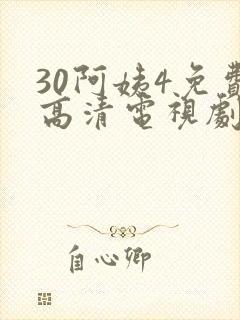 30阿姨4免費
高清電視劇
自心卿